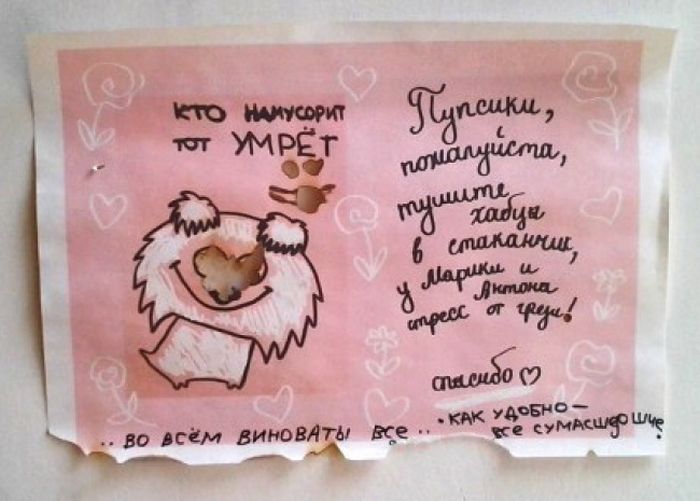 КТО НАМУСОРИТ
ТОТ УМРЁТ
Пупсики,
пожалуйста,
тушите
хабцы
в стаканчик,
у Марики и
Антона
стресс от грези!
спасибо ♡
..ВО ВСЁМ ВИНОВАТЫ ВСЕ..
•КАК УДОБНО—
ВСЕ СУМАСШЕДШИЕ